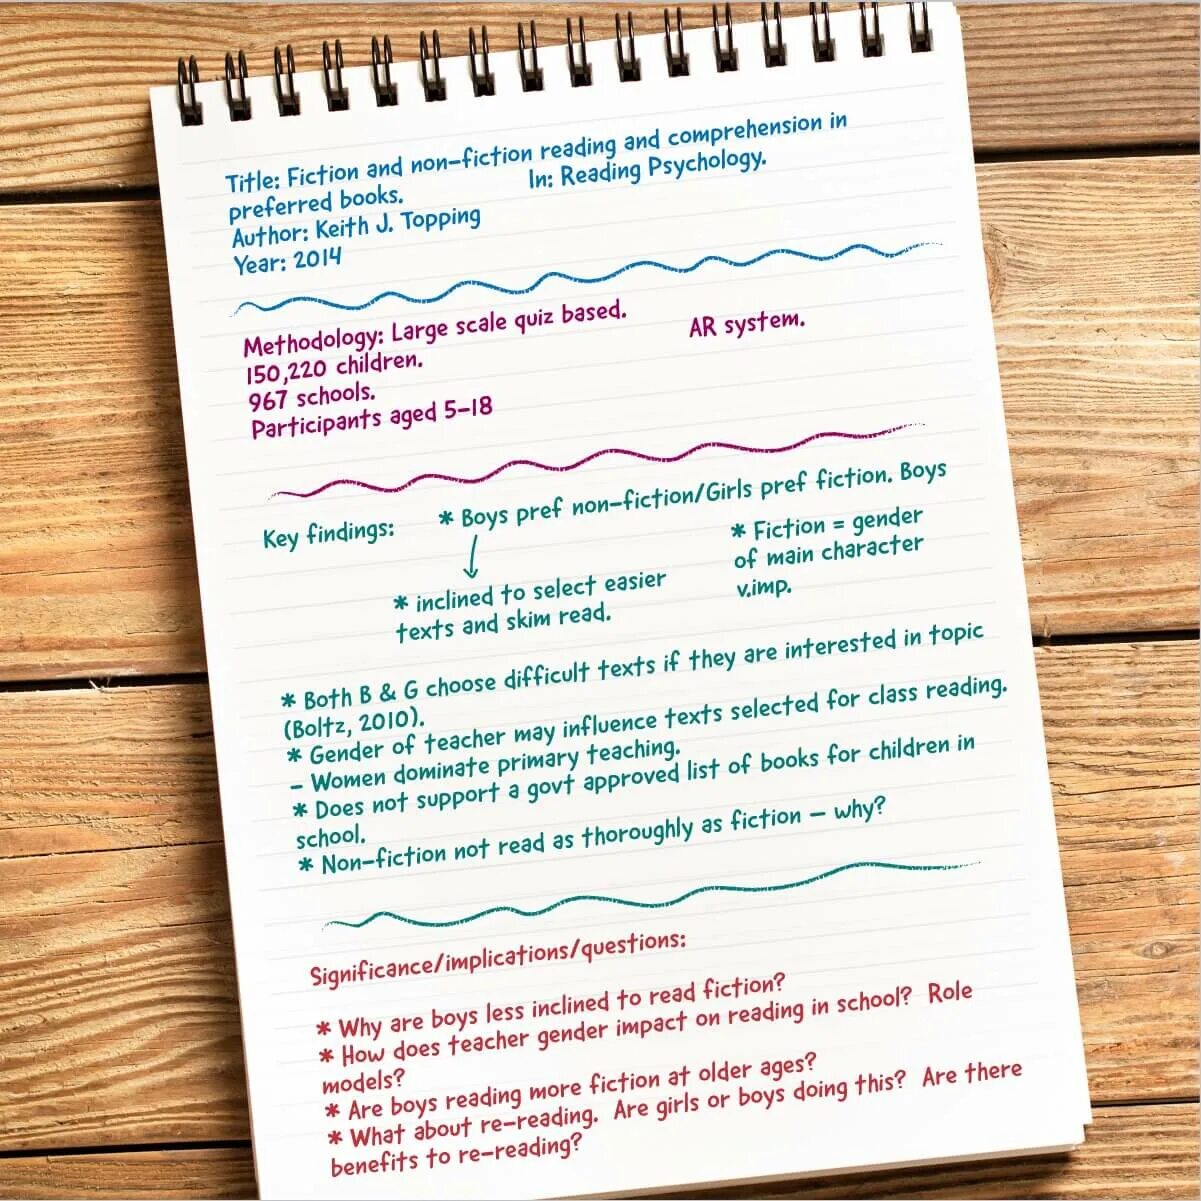 Title: Fiction and non-fiction reading and comprehension in
preferred books.
In: Reading Psychology.
Author: Keith J. Topping
Year: 2014
Methodology: Large scale quiz based.
AR system.
150,220 children.
967 schools.
Participants aged 5-18
Key findings:
* Boys pref non-fiction/Girls pref fiction. Boys
* inclined to select easier
texts and skim read.
* Fiction = gender
of main character
v.imp.
* Both B & G choose difficult texts if they are interested in topic
(Boltz, 2010).
* Gender of teacher may influence texts selected for class reading.
- Women dominate primary teaching.
* Does not support a govt approved list of books for children in
school.
* Non-fiction not read as thoroughly as fiction – why?
Significance/implications/questions:
* Why are boys less inclined to read fiction?
* How does teacher gender impact on reading in school? Role
models?
* Are boys reading more fiction at older ages?
* What about re-reading. Are girls or boys doing this? Are there
benefits to re-reading?